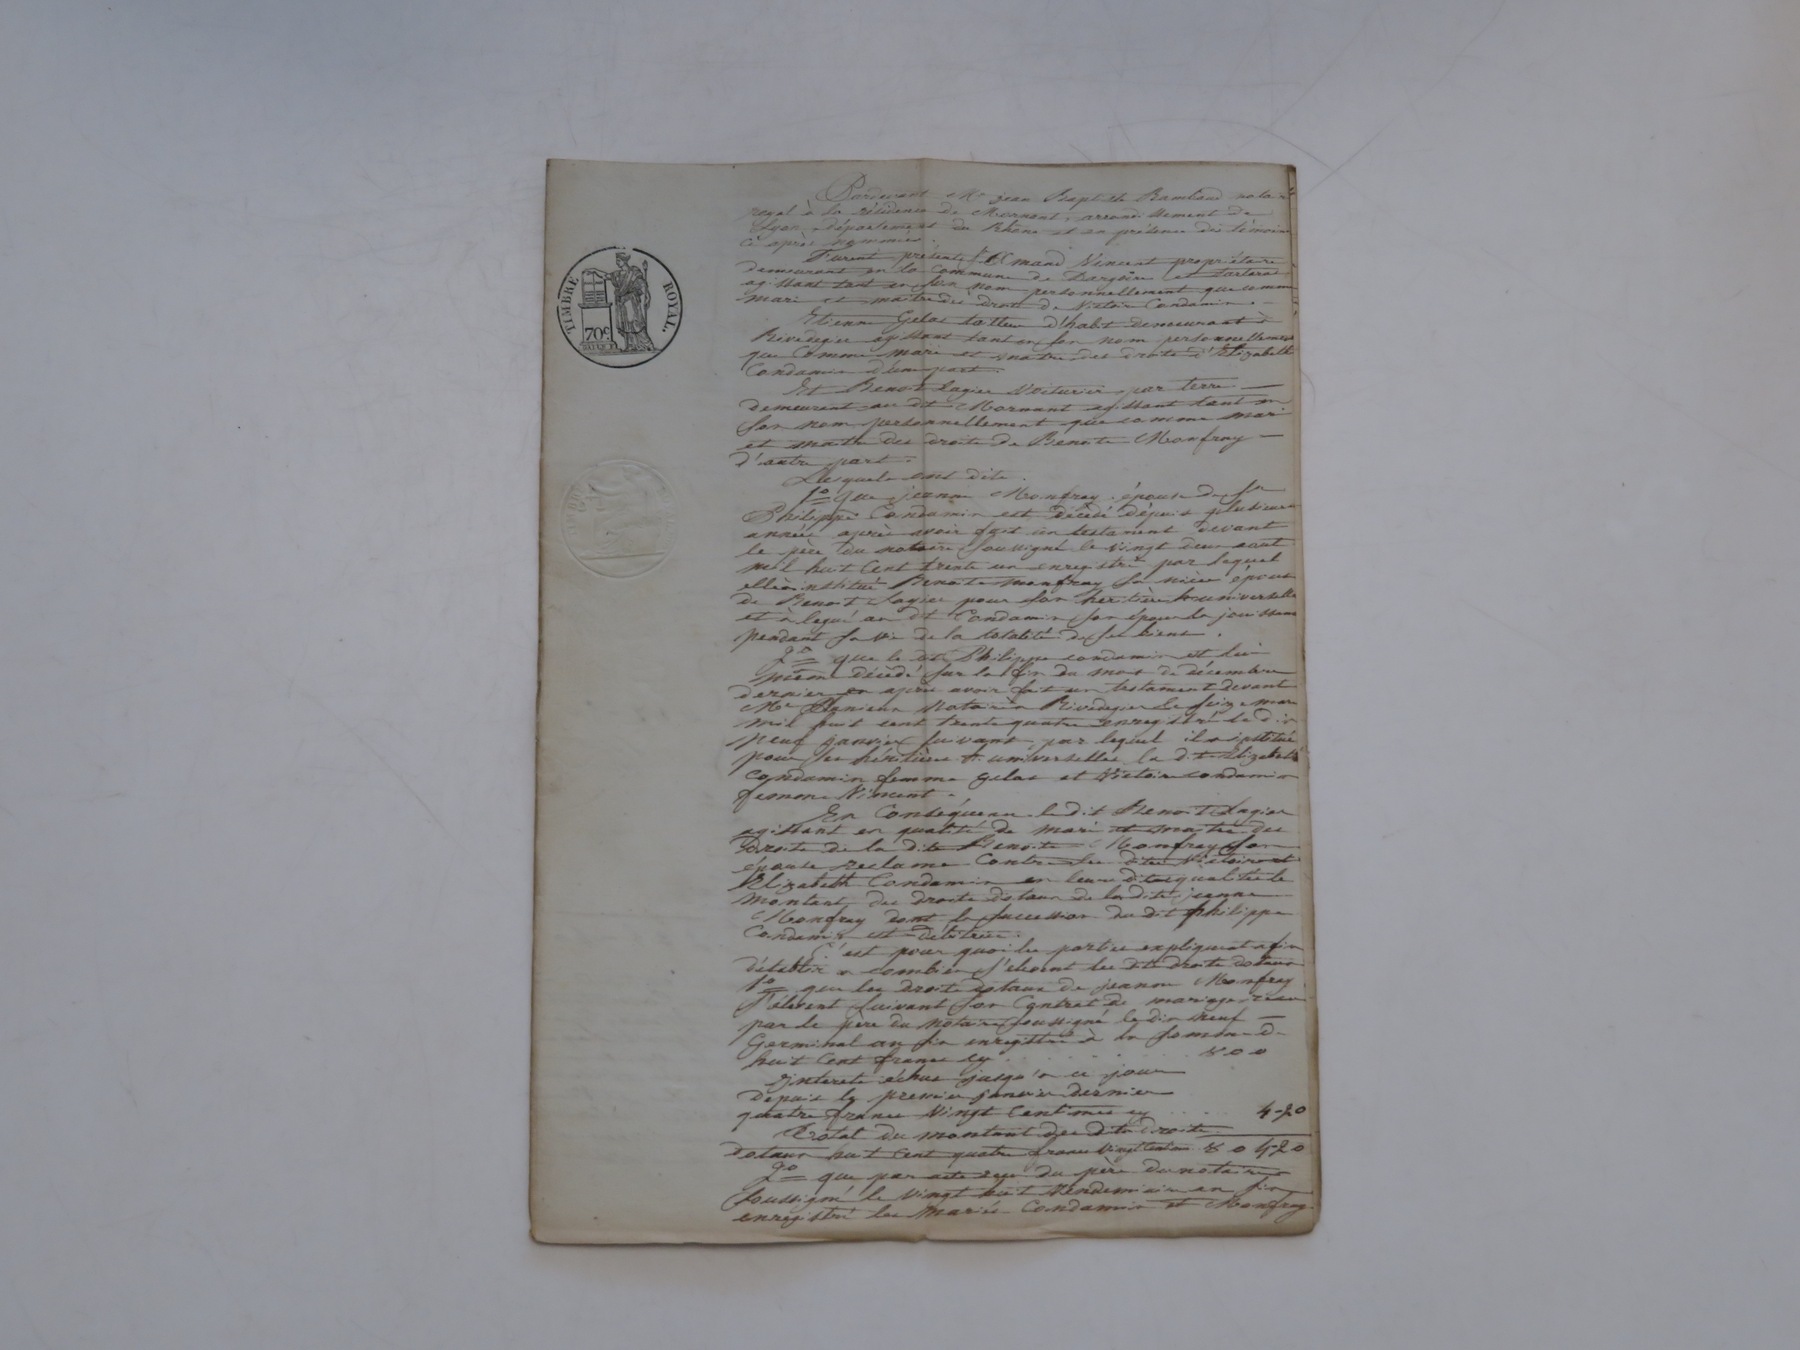 TIMBRE ROYAL.
70c.
Pardevant Me jean Baptiste Rambaud notaire
royal à la résidence de Mornant, arrondissement de
Lyon, département du Rhône et en présence des témoins
ci après nommés.
Furent présents Vincent propriétaire
demeurant en la Commune de Dargoire et Tartaras
agissant tant en son nom personnellement que comme
mari et maitre des droits de Victoire Condamin. —
Etienne Gelas tailleur d'habit demeurant à
Rivedegier agissant tant en son nom personnellement
que Comme mari et maitre des droits d'Elizabeth
Condamin d'une part.
Et Benoit Lagier Voiturier par terre —
demeurant au dit Mornant agissant tant en
son nom personnellement que comme mari
et maitre des droits de Benoite Monfray —
d'autre part.
Lesquels ont dits.
1o que jeanne Monfray épouse de feu
Philippe Condamin est décédé depuis plusieurs
années après avoir fait un testament devant
le père du notaire soussigné le vingt deux aout
mil huit cent trente un enregistré par lequel
elle a institué Benoite Monfray sa nièce épouse
de Benoit Lagier pour son heritière universelle
et a legué au dt Condamin son époux la jouissance
pendant sa vie de la totalité de ses biens.
2o que le dit Philippe condamin est lui
même décédé sur la fin du mois de décembre
dernier après avoir fait un testament devant
Me notaire à Rivedegier le seize mars
mil huit cent trente quatre enregistré le dix
neuf janvier suivant, par lequel il a institué
pour ses héritières universelles la dte Elizabeth
Condamin femme Gelas et Victoire condamin
femme Vincent.
En Conséquence le dit Benoit Lagier
agissant en qualité de mari et maitre des
droits de la dite Benoite Monfray son
épouse reclame Contre les dites Victoire et
Elizabeth Condamin en leurs dites qualités le
montant des droits dotaux de la dite jeanne
Monfray dont la succession du dit philippe
Condamin est débitrice.
C'est pour quoi les parties expliquent afin
d'établir a combien s'élevent les dts droits dotaux
1o que les droits dotaux de jeanne Monfray
s'élevent suivant son Contrat de mariage reçu
par le père du notaire soussigné le dix neuf —
Germinal an six enregistré à la somme de
huit Cent francs cy . . . . . . 800
Interets échus jusqu'a ce jour
depuis le premier janvier dernier
quatre francs vingt Centimes cy . . . . 4-20
Total du montant des dts droits
dotaux huit cent quatre francs vingt centimes 804-20
2o que par acte reçu du père du notaire
soussigné le vingt huit Vendemiaire an six
enregistré les mariés Condamin et Monfray